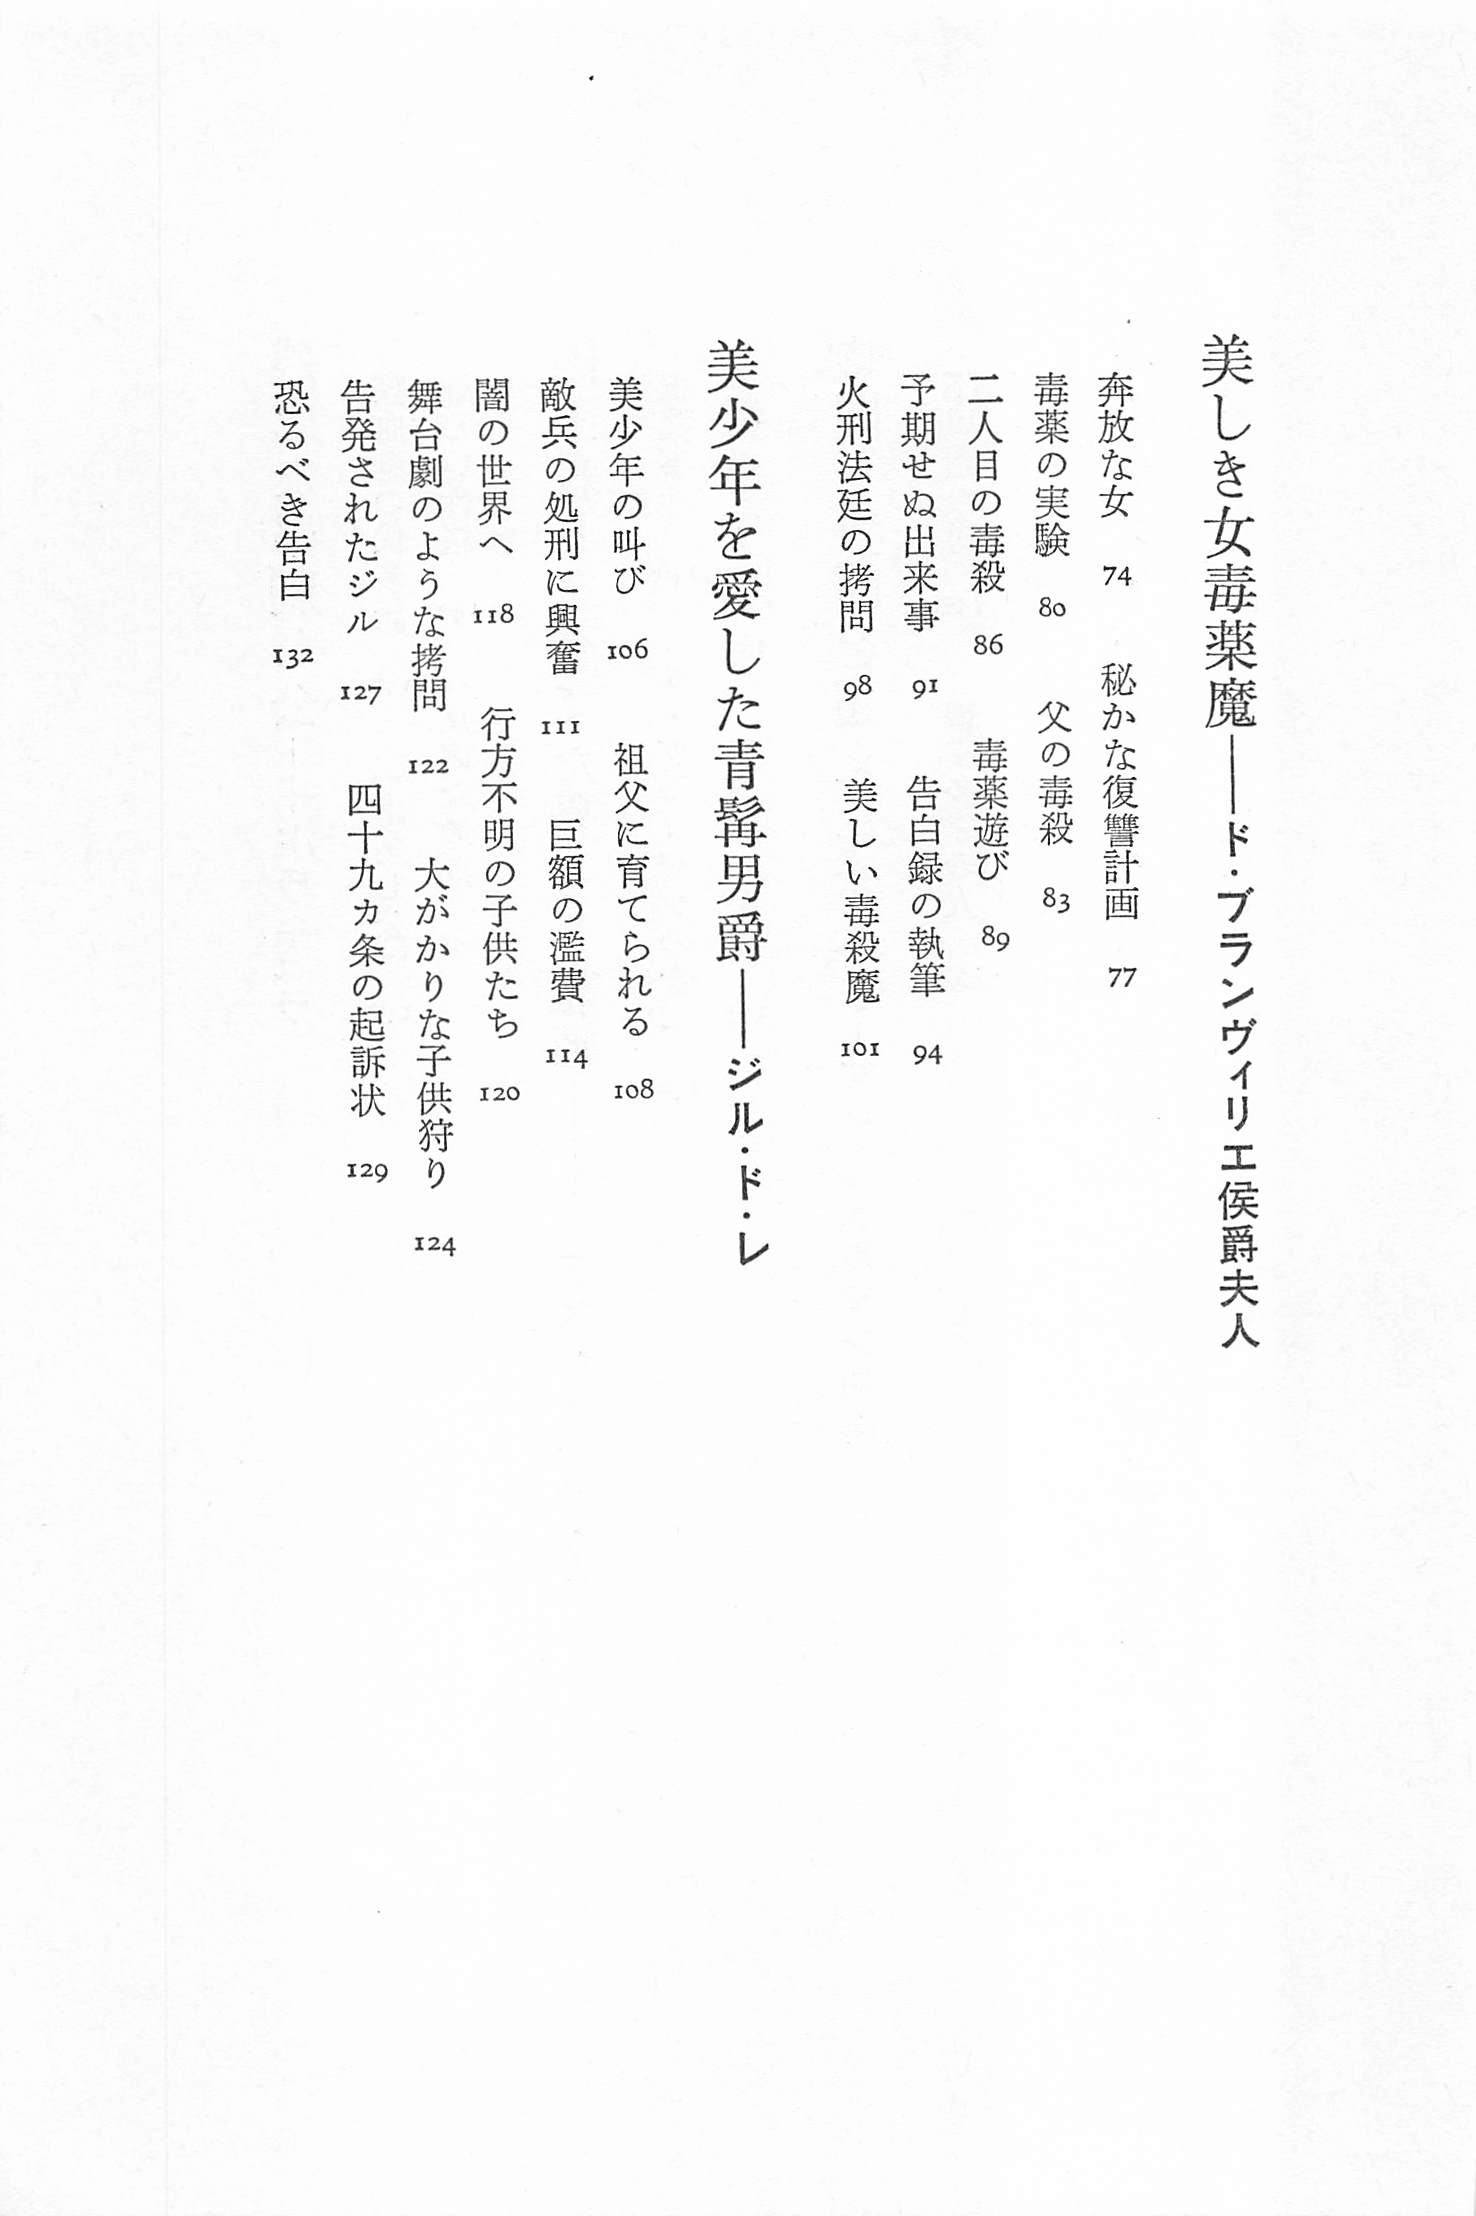 美しき女毒薬魔――ド・ブランヴィリエ侯爵夫人
奔放な女 74 秘かな復讐計画 77
毒薬の実験 80 父の毒殺 83
二人目の毒殺 86 毒薬遊び 89
予期せぬ出来事 91 告白録の執筆 94
火刑法廷の拷問 98 美しい毒殺魔 101
美少年を愛した青髯男爵――ジル・ド・レ
美少年の叫び 106 祖父に育てられる 108
敵兵の処刑に興奮 111 巨額の濫費 114
闇の世界へ 118 行方不明の子供たち 120
舞台劇のような拷問 122 大がかりな子供狩り 124
告発されたジル 127 四十九カ条の起訴状 129
恐るべき告白 132